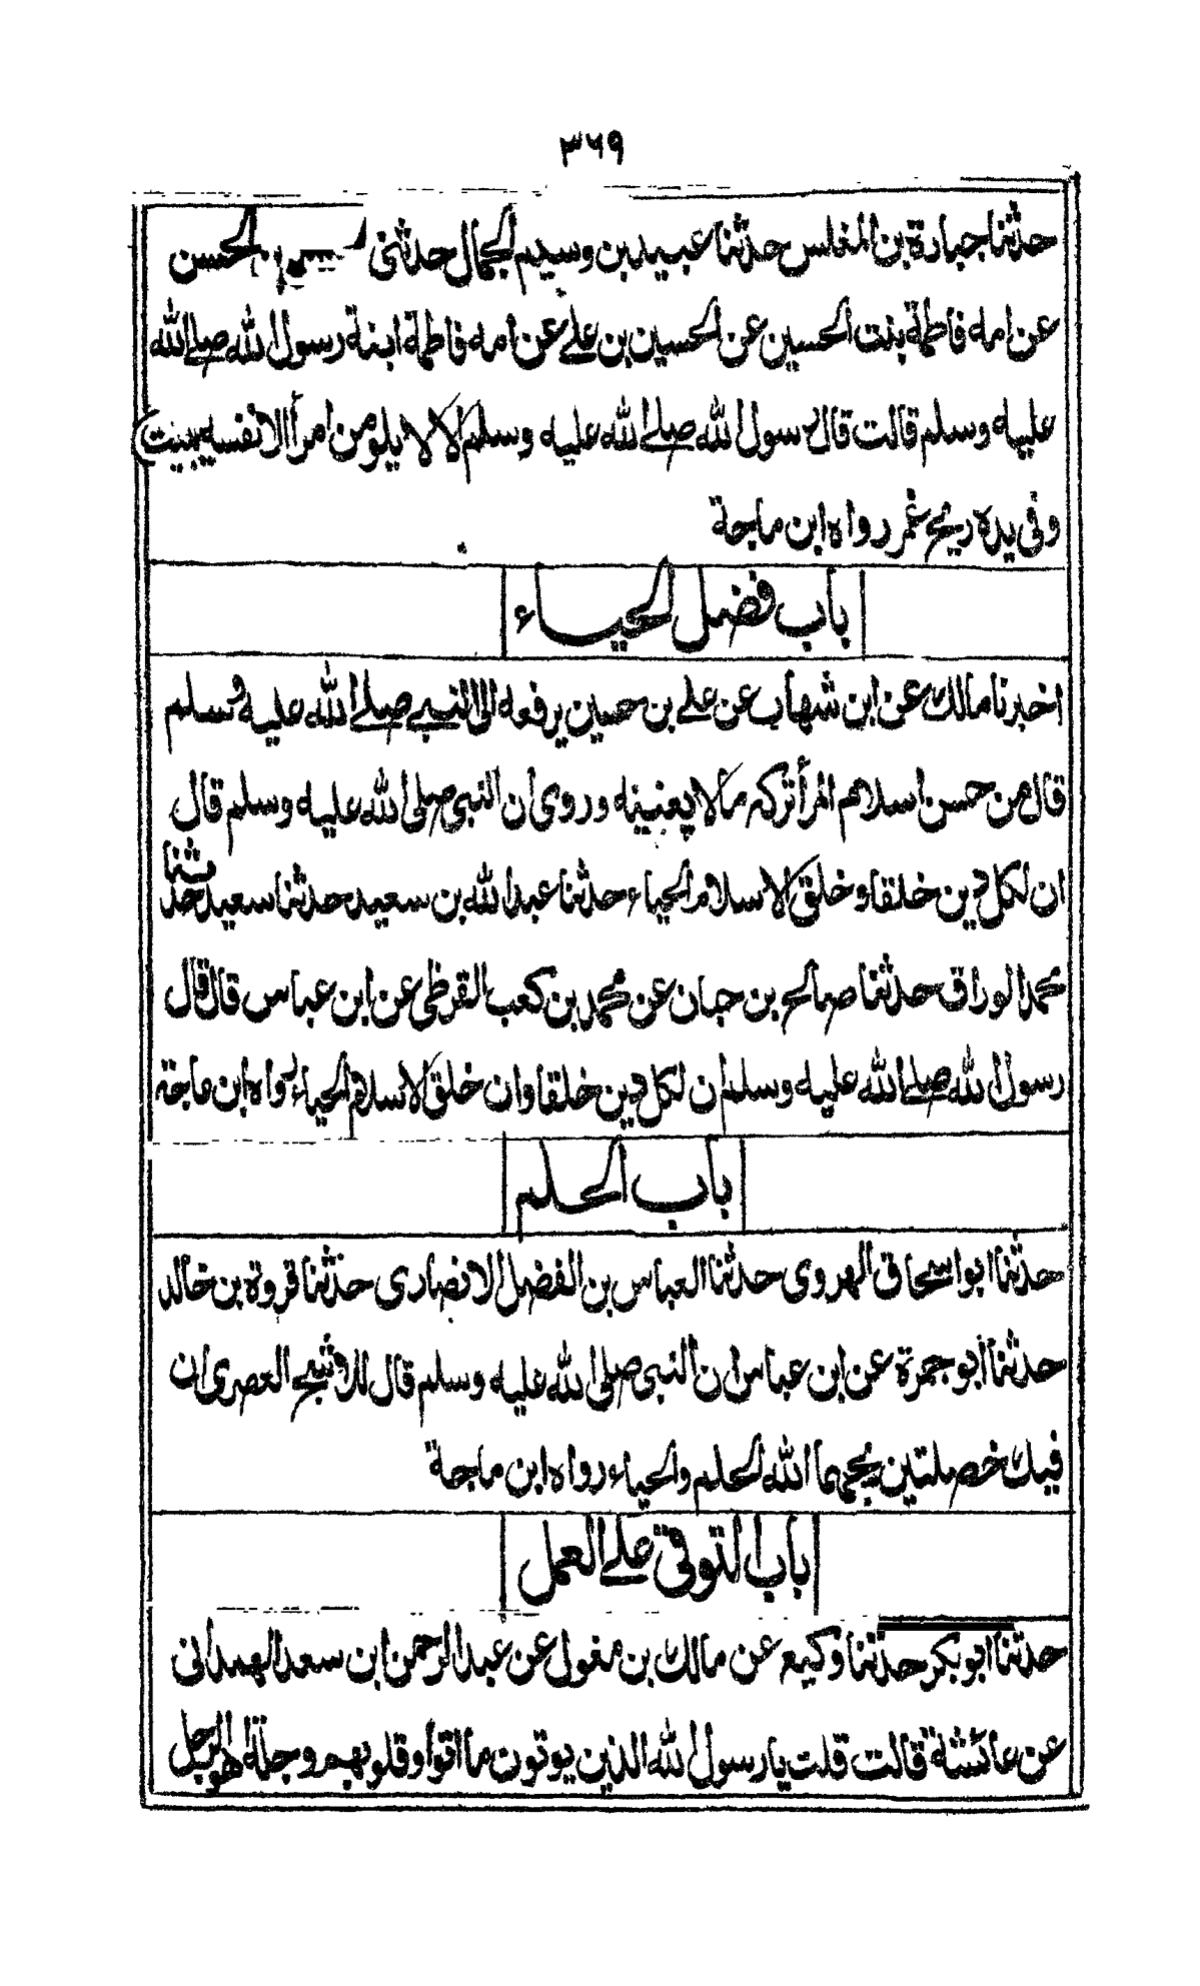 ٣٦٩
حدثنا جبارة بن المغلس حدثنا عبيد بن وسيم الجمال حدثني الحسن
عن امه فاطمة بنت الحسين عن الحسين بن علي عن امه فاطمة ابنة رسول الله صلے الله
عليه وسلم قالت قال رسول الله صلے الله عليه وسلم الا لا يلومن امرأ الا نفسه يبيت
وفي يده ريح غمر رواه ابن ماجة
باب فضل الحياء
اخبرنا مالك عن ابن شهاب عن علے بن حسين يرفعه الى النبے صلے الله عليه وسلم
قال من حسن اسلام المرأ تركه مالا يعنيه وروى ان النبي صلى الله عليه وسلم قال
ان لكل دين خلقا وخلق الاسلام الحياء حدثنا عبد الله بن سعيد حدثنا سعيد حدثنا
محمد الوراق حدثنا صالح بن حبان عن محمد بن كعب القرظي عن ابن عباس قال قال
رسول الله صلے الله عليه وسلم ان لكل دين خلقا وان خلق الاسلام الحياء رواه ابن ماجة
باب الحلم
حدثنا ابو اسحاق الهروى حدثنا العباس بن الفضل الانصارى حدثنا قروة بن خالد
حدثنا أبو جمرة عن ابن عباس ان النبي صلى الله عليه وسلم قال للاشج العصرى ان
فيك خصلتين يحبهما الله الحلم والحياء رواه ابن ماجة
باب التوقي علے العمل
حدثنا ابو بكر حدثنا وكيع عن مالك بن مغول عن عبد الرحمن ابن سعد الهمداني
عن عائشة قالت قلت يا رسول الله الذين يوتون ما اتوا وقلوبهم وجلة اهو الرجل